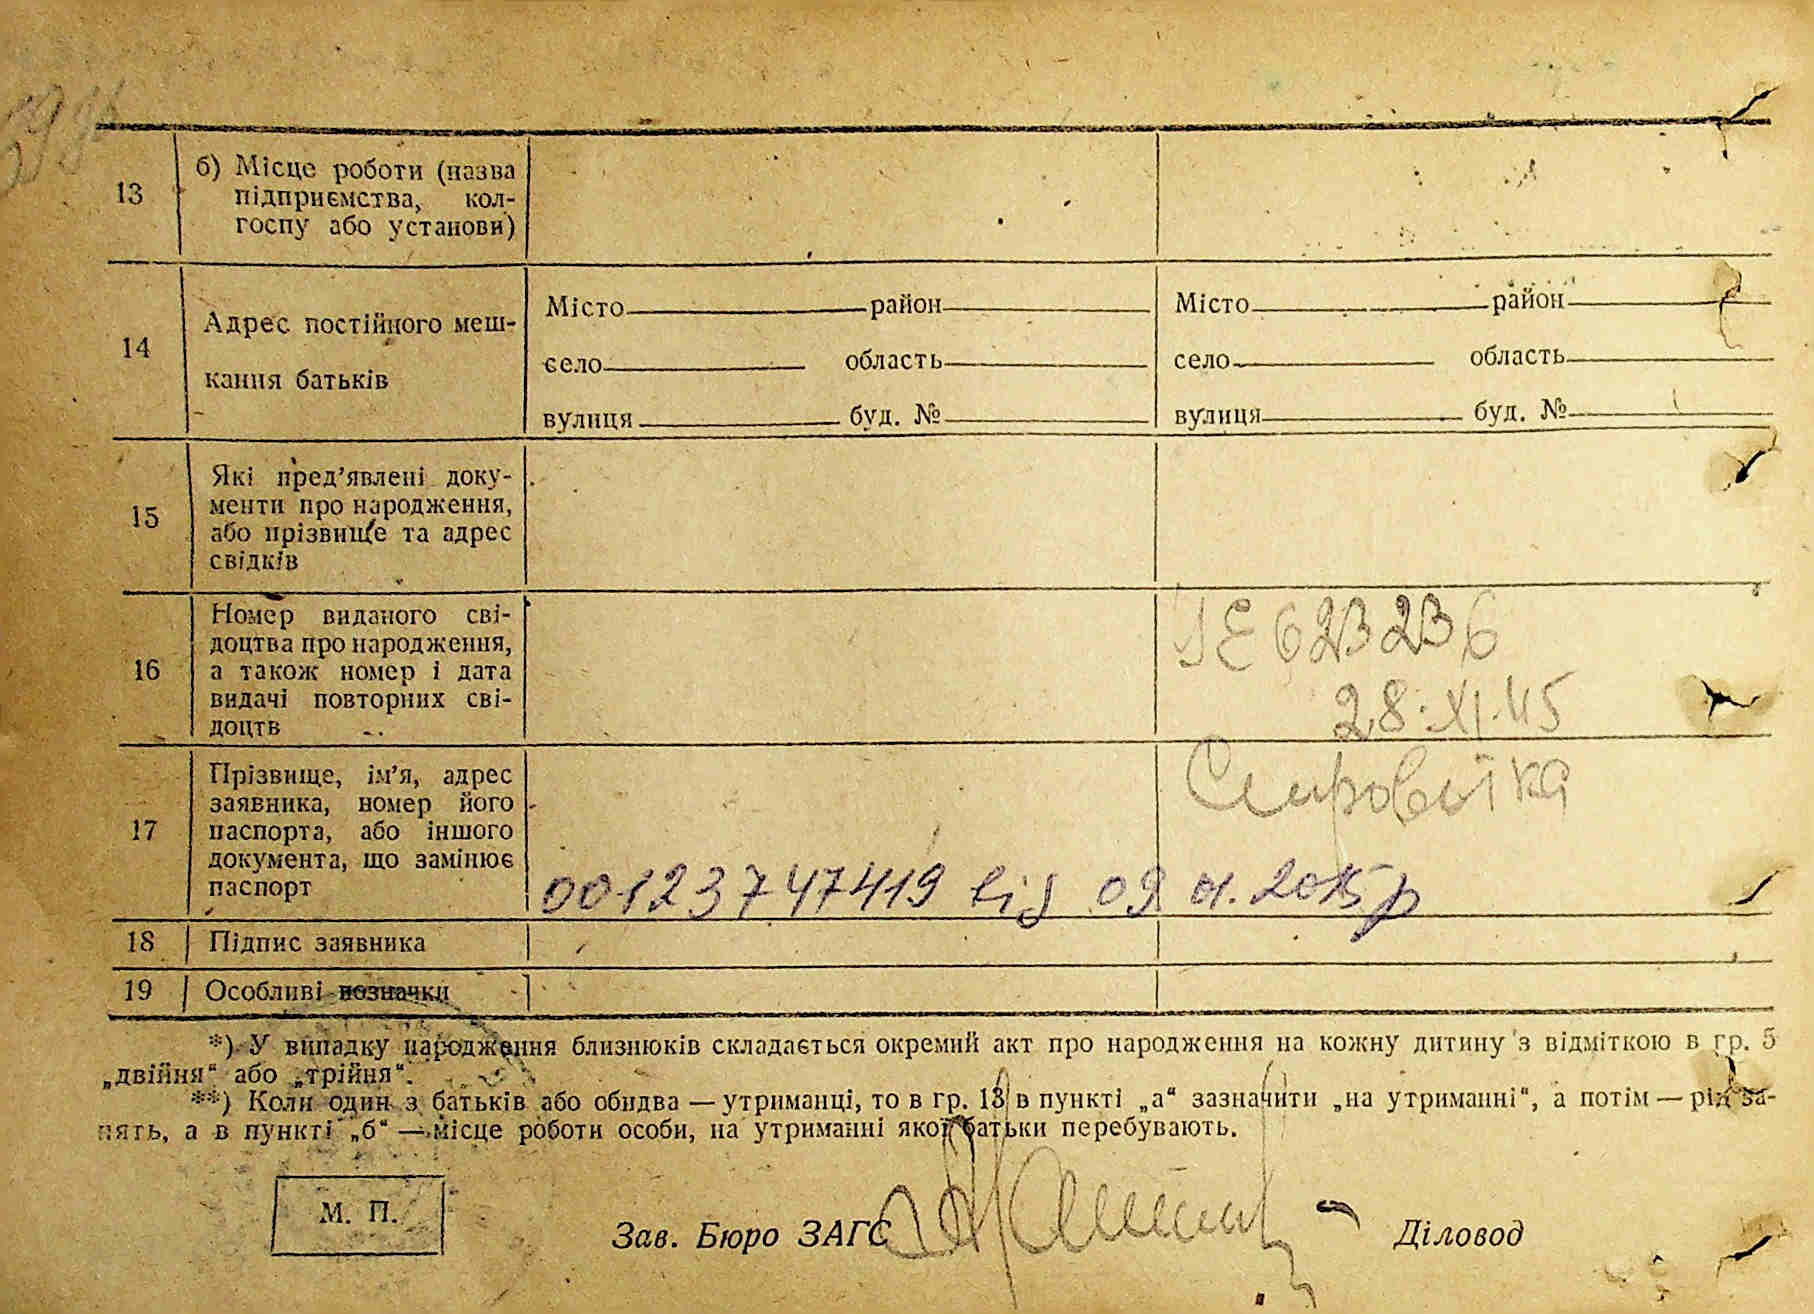 13
б) Місце роботи (назва
підприємства, кол-
госпу або установи)
14
Адрес постійного меш-
кання батьків
Місто район
село область
вулиця буд. №
Місто район
село область
вулиця буд. №
15
Які пред’явлені доку-
менти про народження,
або прізвище та адрес
свідків
16
Номер виданого сві-
доцтва про народження,
а також номер і дата
видачі повторних сві-
доцтв
623236
28.XI.45
17
Прізвище, ім’я, адрес
заявника, номер його
паспорта, або іншого
документа, що замінює
паспорт
Сыроватка
00123747419 від 09 01.2015р
18 Підпис заявника
19 Особливі позначки
*) У випадку народження близнюків складається окремий акт про народження на кожну дитину з відміткою в гр. 5
„двійня“ або „трійня“.
**) Коли один з батьків або обидва — утриманці, то в гр. 13 в пункті „а“ зазначити „на утриманні“, а потім — рід за-
нять, а в пункті „б“ — місце роботи особи, на утриманні якої батьки перебувають.
М. П.
Зав. Бюро ЗАГС Діловод